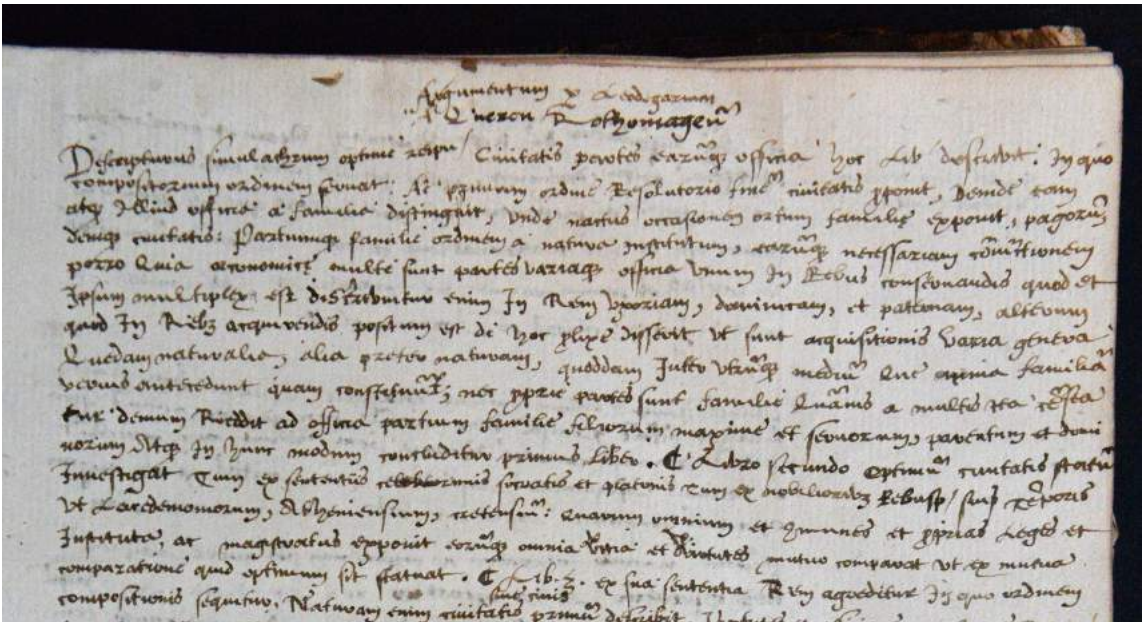 Argumentum p Leodegarium
A Quercu Rothomageū
Descripturus simulachrum optime reipu/ Civitatis partes earūq; officia hoc Lib/ describit: In quo
compositorium ordinem servat. Ac primum ordine Resolutorio finē civitatis pponit, Deinde eam
atq; Illius officia a familia distinguit, unde nactus occasionem ortum familie exponit, pagorū
deniq; civitatis: Partiumq; familie ordinem a natura institutum, earūq; necessariam
porro Quia œconomice multe sunt partes variaq; officia Unum In Rebus conservandis quod et
Ipsum multiplex est distribuitur enim In Rem Uxoriam, dominicam, et patriam, alterum
quod In Rebz acquirendis positum est de hoc plixe disserit ut sunt acquisitionis varia genera
Quedam naturalia, alia preter naturam, quoddam Inter utrūq; mediū Que omnia familiā
verius antecedunt quam constituūt; nec pprie partes sunt familie Quāvis a multis ita
demum Rieddit ad officia partium familie filiorum maxime et servorum, parentum et domi
norum Atq; In hunc modum concluditur primus liber. ℂ Libro secundo Optimū civitatis statū
Investigat Tum ex sententiis Socratis et platonis tum ex nobilioribz Rebusp/ sui Tēporis
ut Lacedemoniorum, Atheniensium, cretensiū: Quarum omnium et communes et pprias Leges et
Instituta, ac magistratus exponit eorūq; omnia vitia et virtutes mutuo comparat ut ex mutua
comparatione quid optimum sit statuat. ℂ Lib. 3. ex sua sententia Rem agreditur In quo ordinem
compositionis sequitur. Naturam enim civitatis primū describit
sive civis